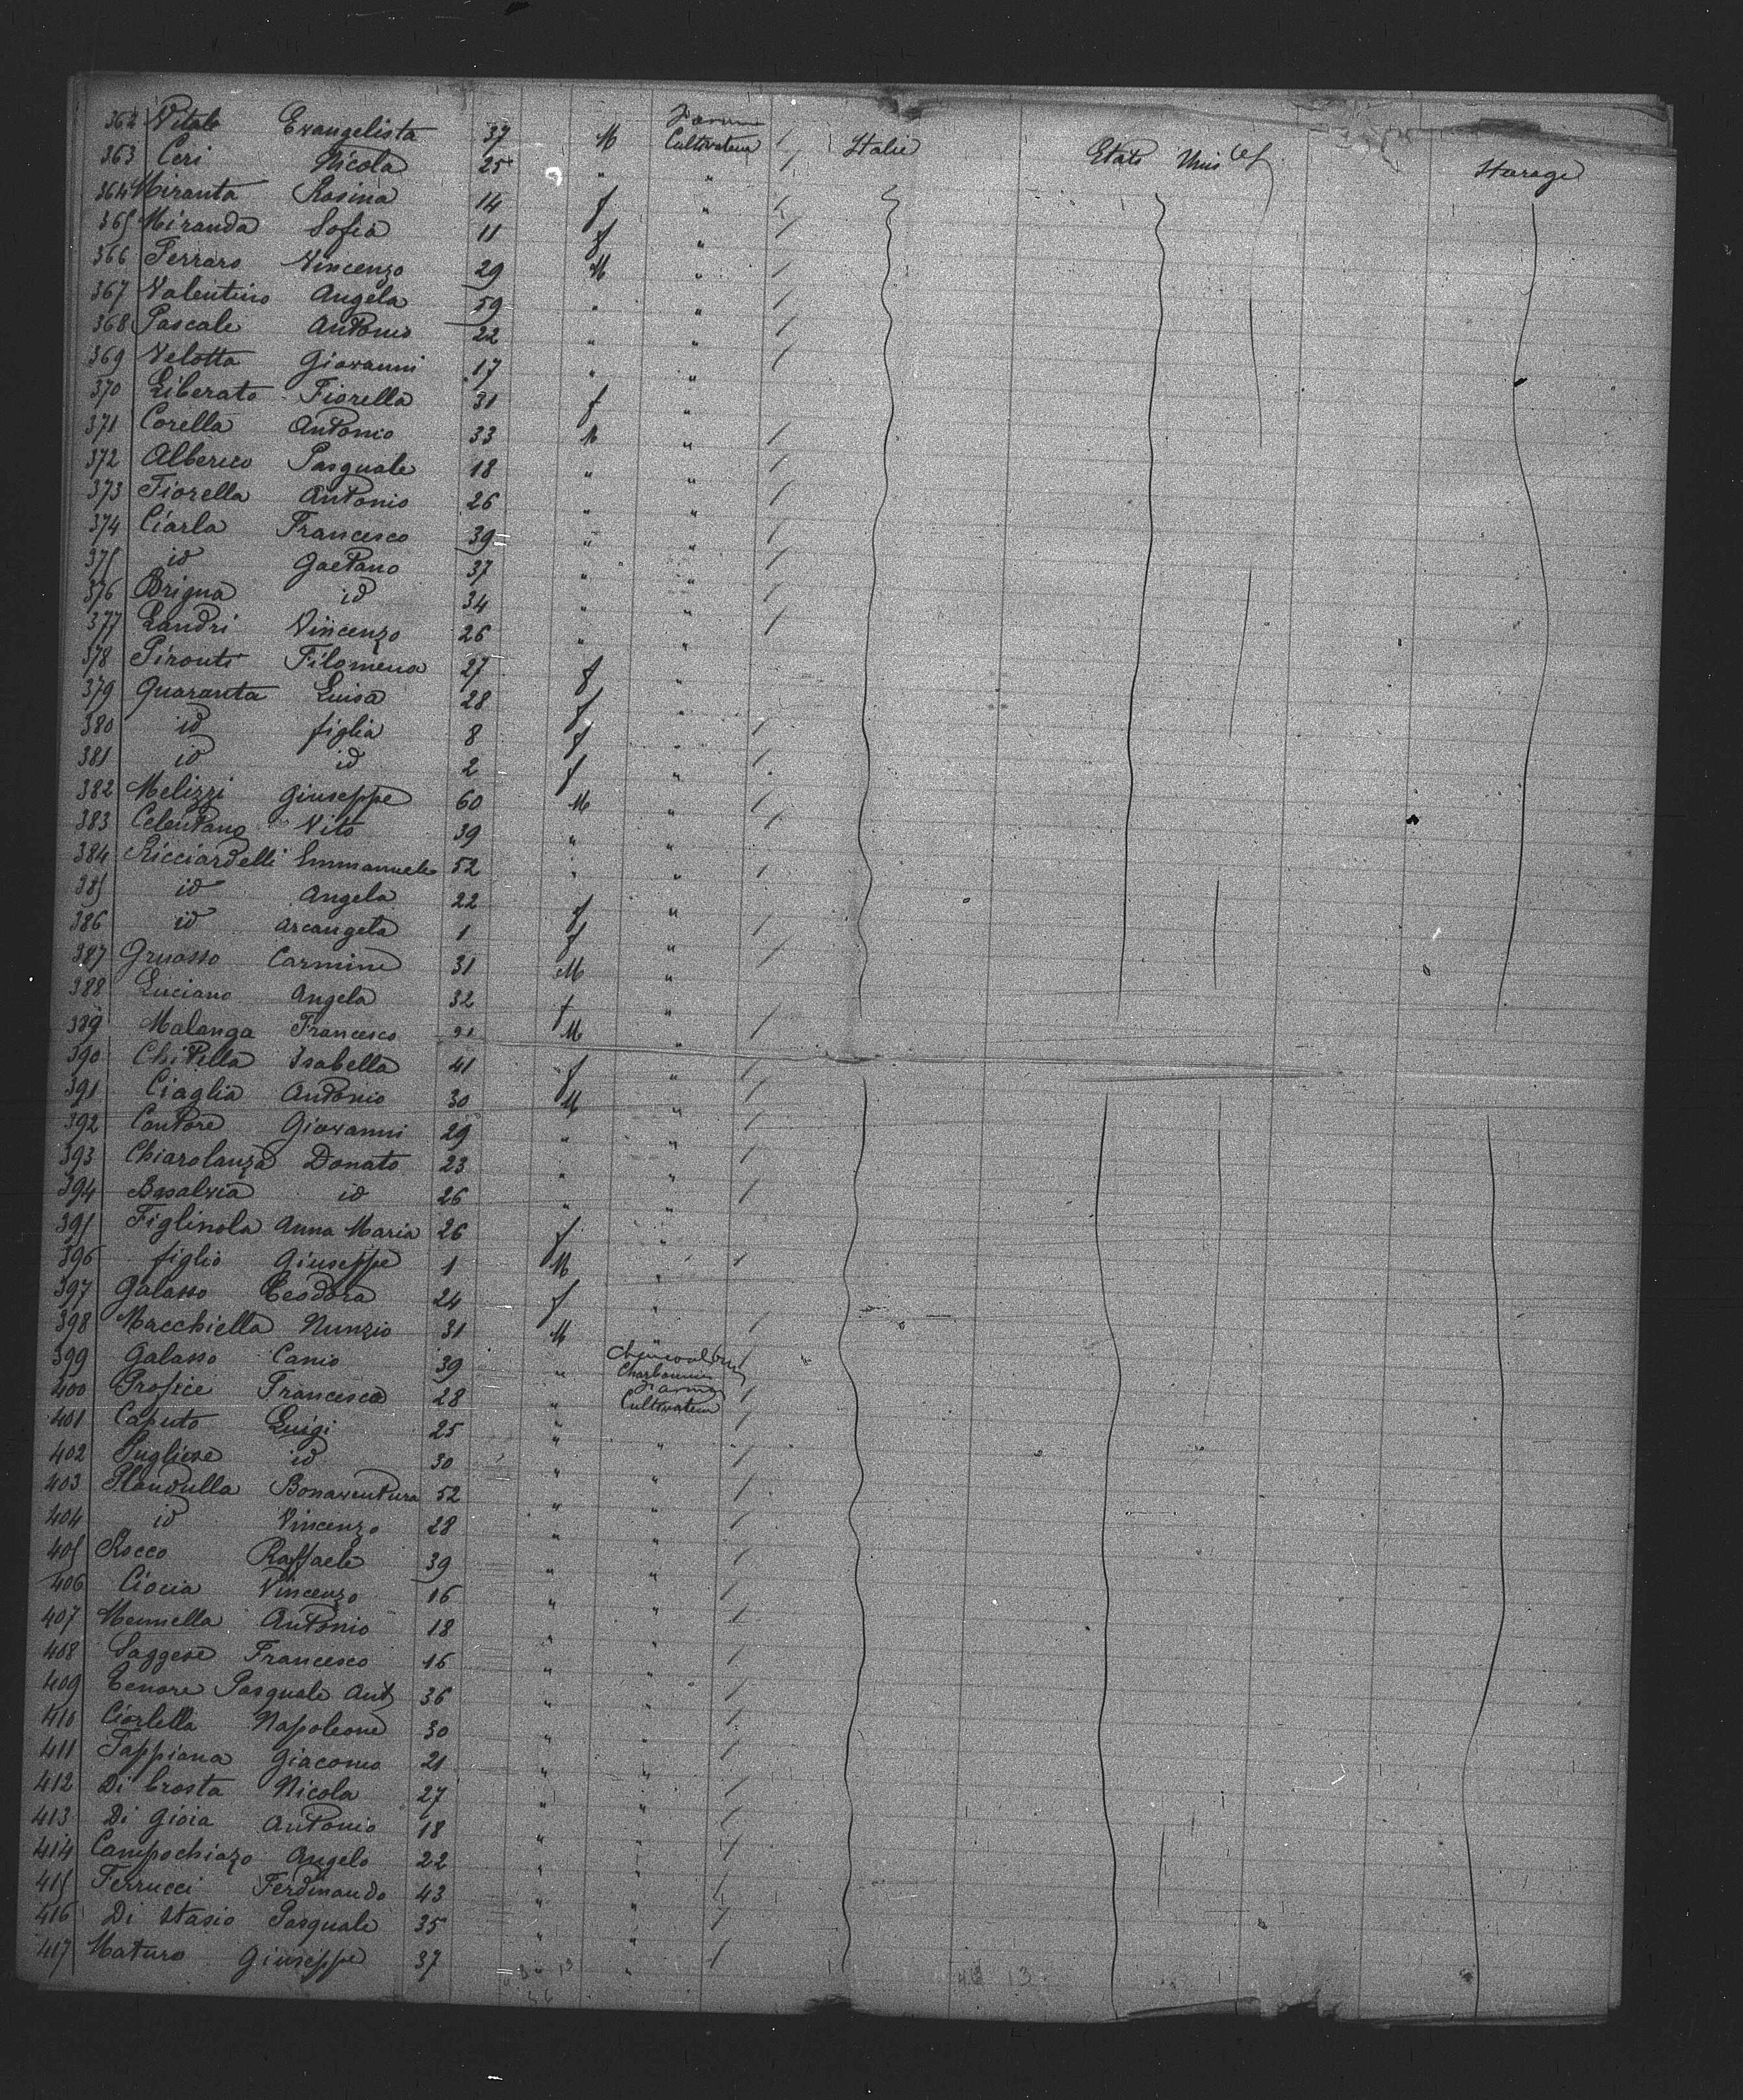 362 Vitale Evangelista 37 M Farmer Cultivateur / Italie Etats Unis Steerage
363 Ceri Nicola 25 " " /
364 Miranta Rosina 14 f " /
365 Miranda Sofia 11 f " /
366 Ferraro Vincenzo 29 M " /
367 Valentino Angela 59 " " /
368 Pascale Antonio 22 " " /
369 Velotta Giovanni 17 " " /
370 Liberato Fiorella 31 f "
371 Corella Antonio 33 M " /
372 Alberico Pasquale 18 " " /
373 Fiorella Antonio 26 " " /
374 Ciarla Francesco 39 " " /
375 id Gaetano 37 " " /
376 Brigna id 34 " " /
377 Landri Vincenzo 26 " " /
378 Pironti Filomena 27 f "
379 Quaranta Luisa 28 f "
380 id figlia 8 f " /
381 id id 2 f " /
382 Melizzi Giuseppe 60 M " /
383 Celentano Vito 39 " " /
384 Ricciardelli Emmanuele 52 " " /
385 id Angela 22 f "
386 id Arcangela 1 f " /
387 Gruosso Carmine 31 M " /
388 Luciano Angela 32 f "
389 Malanga Francesco M " /
390 Chitella Isabella 41 f " /
391 Ciaglia Antonio 30 M " /
392 Cantore Giovanni 29 " " /
393 Chiarolanza Donato 23 " " /
394 Basalvia id 26 " " /
395 Figlinola Anna Maria 26 f "
396 figlio Giuseppe 1 M " /
397 Galasso Teodora 24 f "
398 Macchiella Nunzio 31 M /
399 Galasso Canio 39 " Charbonnier /
400 Profice Francesco 28 " Farmer Cultivateur /
401 Caputo Luigi 25 " " /
402 Pugliese id 30 " " /
403 Plandulla Bonaventura 52 " " /
404 id Vincenzo 28 " " /
405 Rocco Raffaele 39 " " /
406 Ciocia Vincenzo 16 " " /
407 Mennella Antonio 18 " " /
408 Saggese Francesco 16 " " /
409 Tenore Pasquale Ant 36 " " /
410 Ciorletta Napoleone 30 " " /
411 Tappiana Giacomo 21 " " /
412 Di Crosta Nicola 27 " " /
413 Di Gioia Antonio 18 " " /
414 Campochiaro Angelo 22 " " /
415 Ferrucci Ferdinando 43 " " /
416 Di Stasio Pasquale 35 " " /
417 Maturo Giuseppe 37 " /